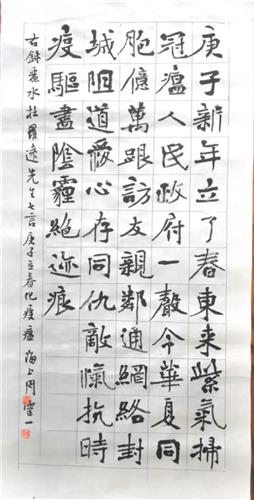 庚子新年立了春東来紫氣掃
冠瘟人民政府一聲令華夏同
胞億萬跟訪友親鄰通網絡封
城阻道愛心存同仇敵愾抗時
疫驅盡陰霾絶迹痕
古錄水杜遠先生七言庚子立春化疫瘟 海上周靈一